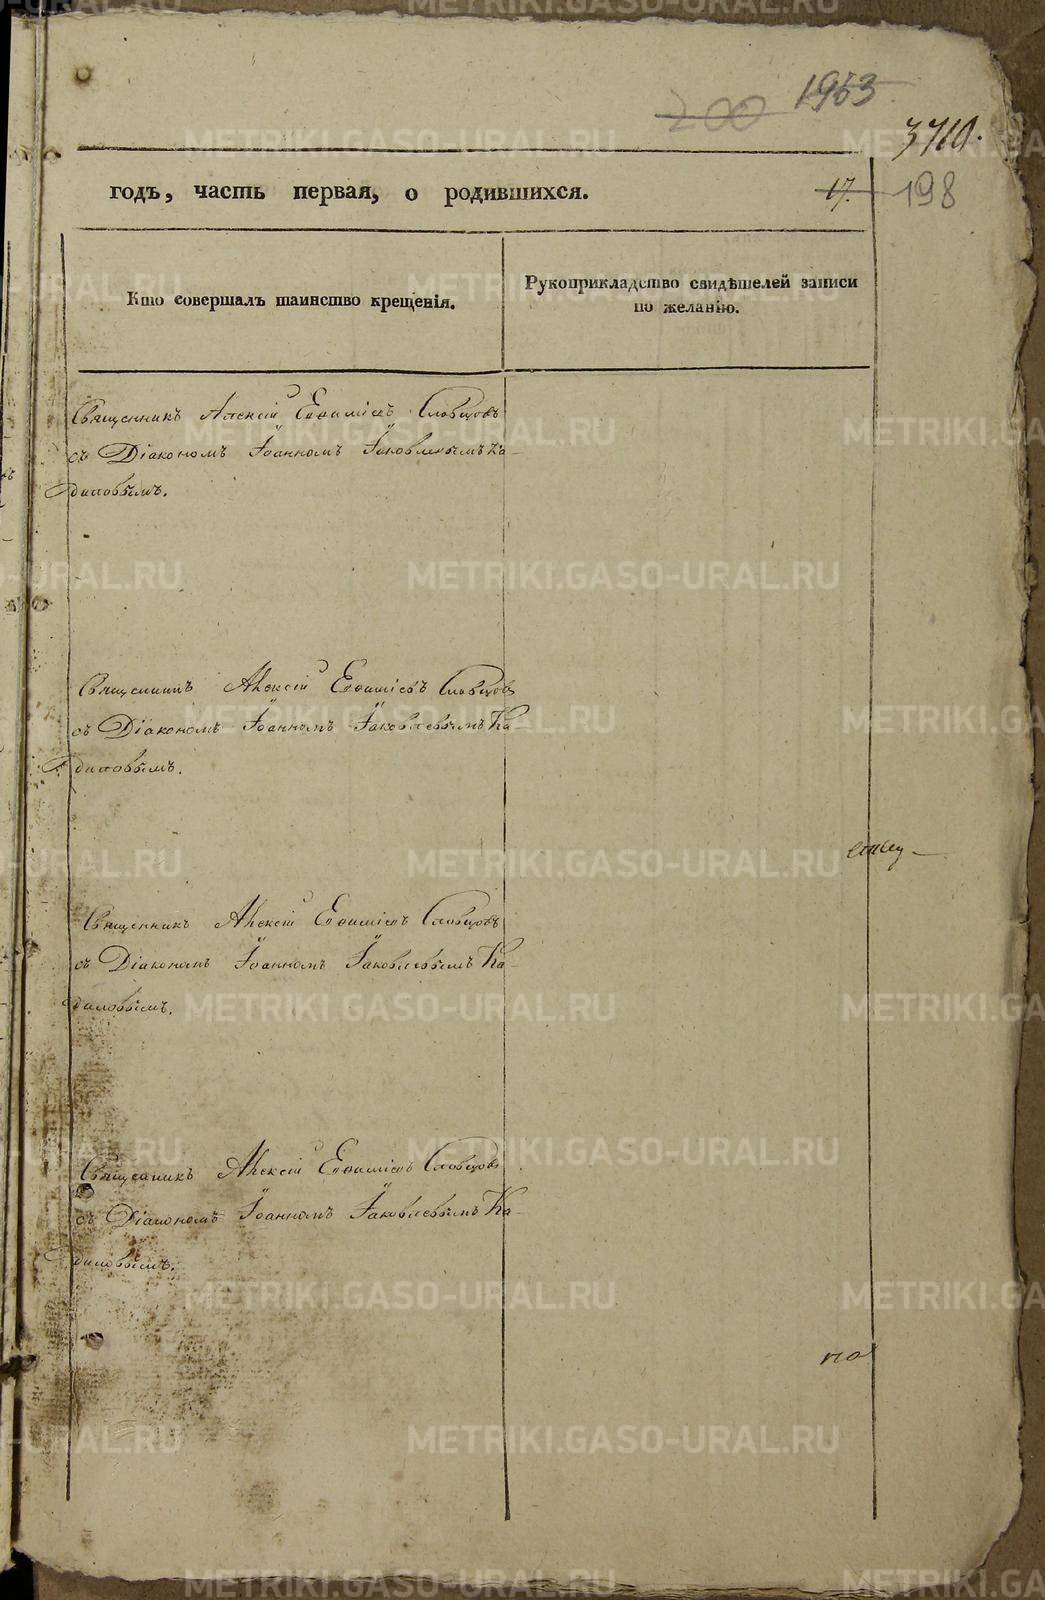 200 1953
3710.
годъ, часть первая, о родившихся. 17. 198
Кто совершалъ таинство крещенія.
Рукоприкладство свидѣтелей записи
по желанію.
Священникъ Алексій Евѳиміевъ Словцовъ
съ Діакономъ Іоанномъ Іаковлевымъ Ка-
диловымъ.
Священникъ Алексій Евѳиміевъ Словцовъ
съ Діакономъ Іоанномъ Іаковлевымъ Ка-
диловымъ.
Священникъ Алексій Евѳиміевъ Словцовъ
съ Діакономъ Іоанномъ Іаковлевымъ Ка-
диловымъ.
Священникъ Алексій Евѳиміевъ Словцовъ
съ Діакономъ Іоанномъ Іаковлевымъ Ка-
диловымъ.
по
METRIKI.GASO-URAL.RU